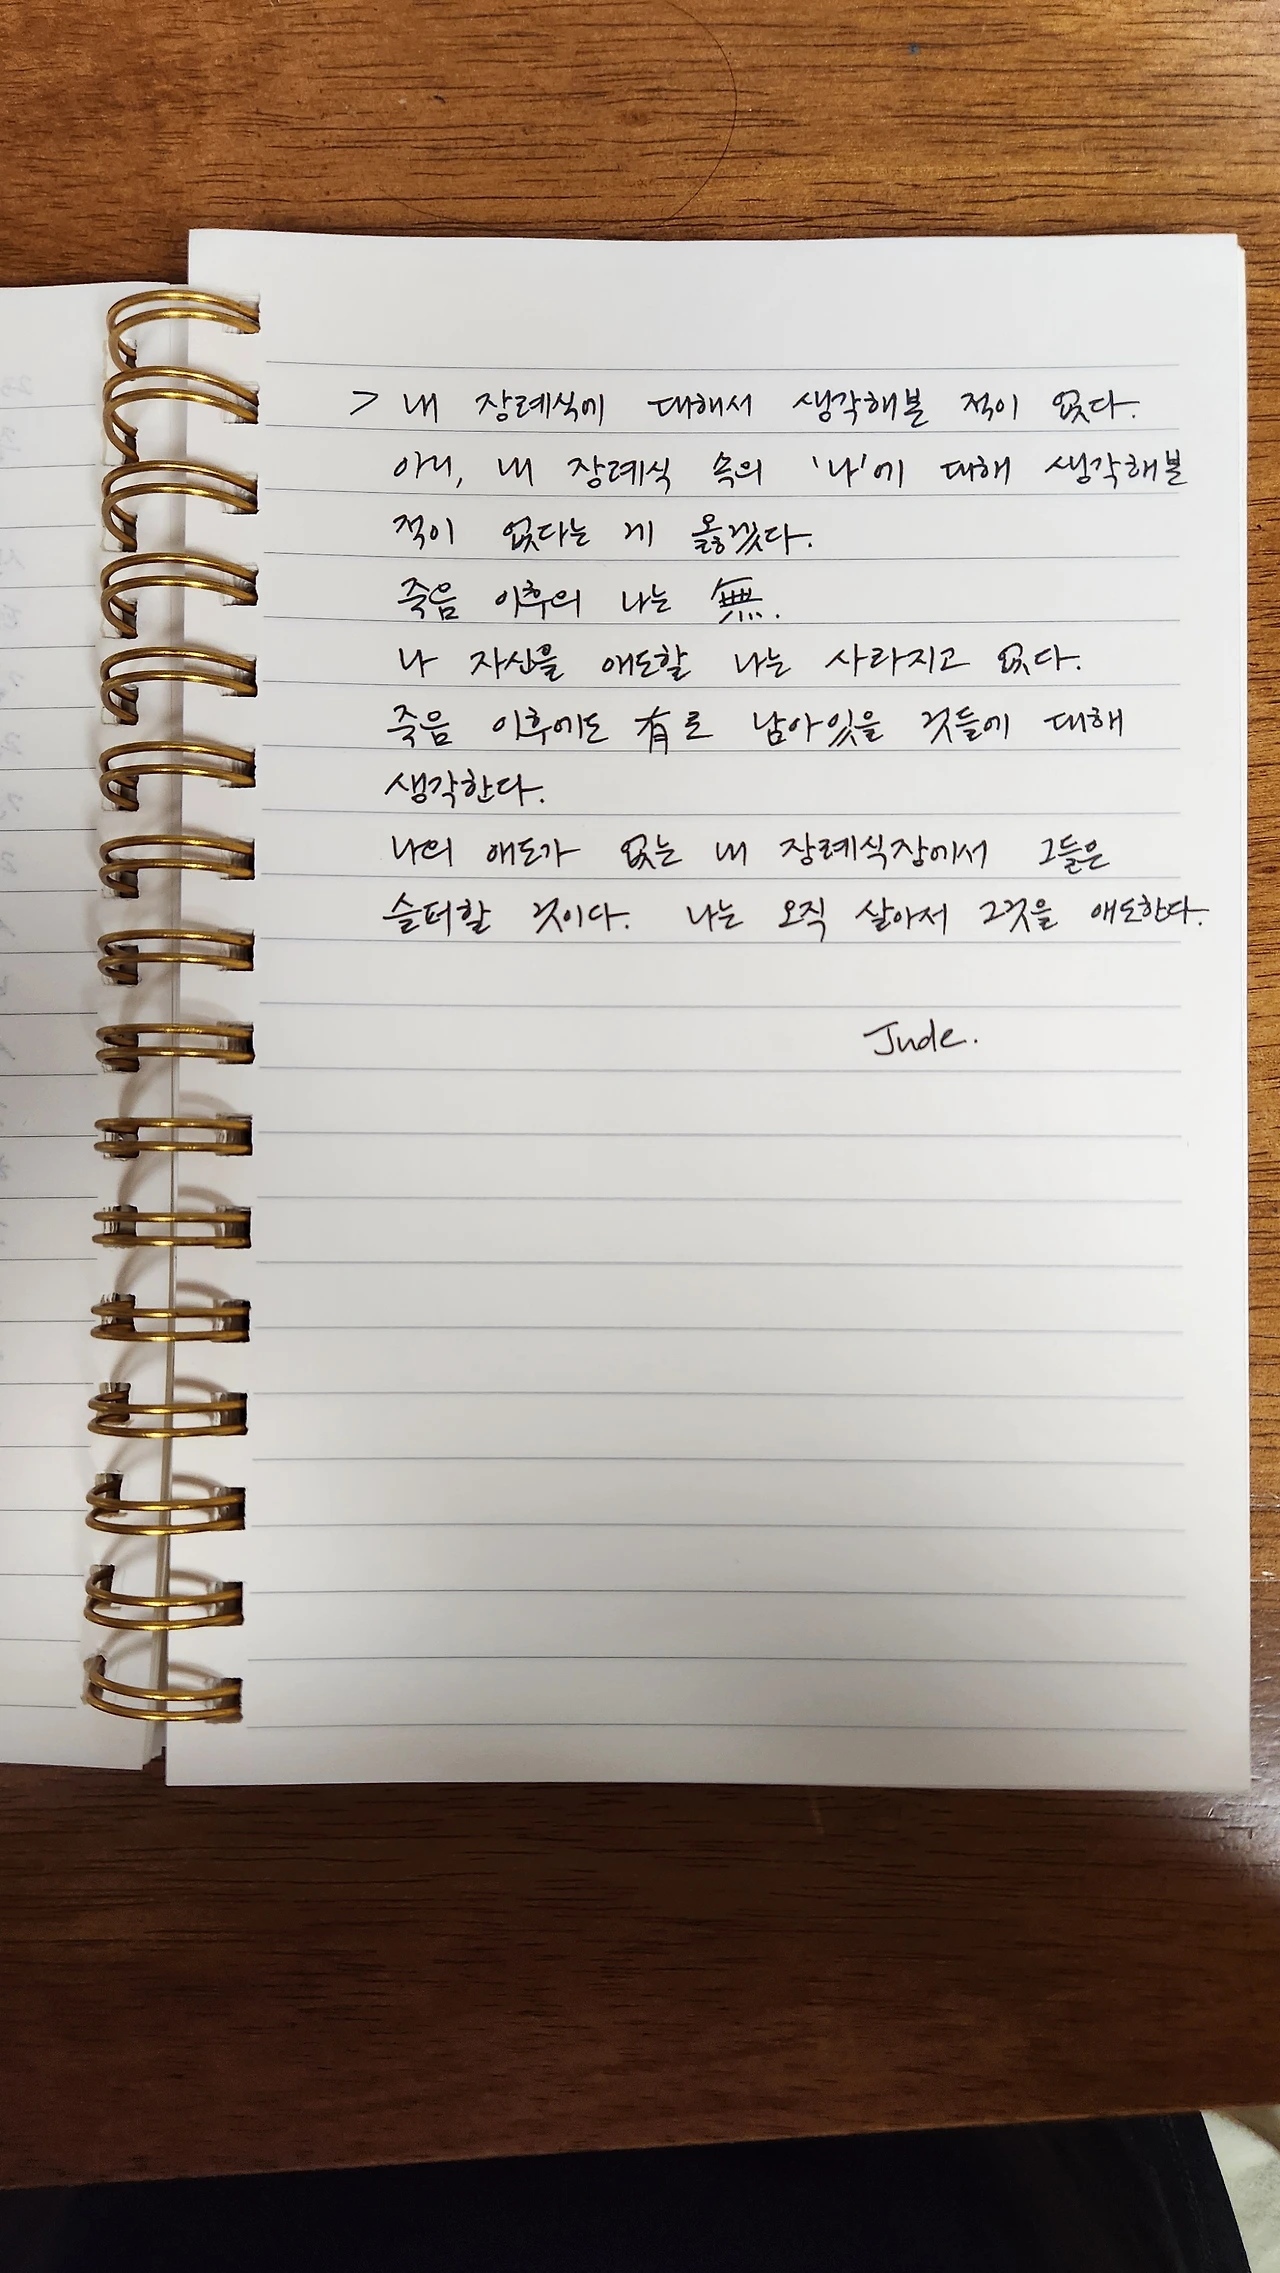 > 내 장례식에 대해서 생각해볼 적이 없다.
아니, 내 장례식 속의 '나'에 대해 생각해볼
적이 없다는 게 옳겠다.
죽음 이후의 나는 無.
나 자신을 애도할 나는 사라지고 없다.
죽음 이후에도 有로 남아있을 것들에 대해
생각한다.
나의 애도가 없는 내 장례식장에서 그들은
슬퍼할 것이다. 나는 오직 살아서 그것을 애도한다.
Jude.